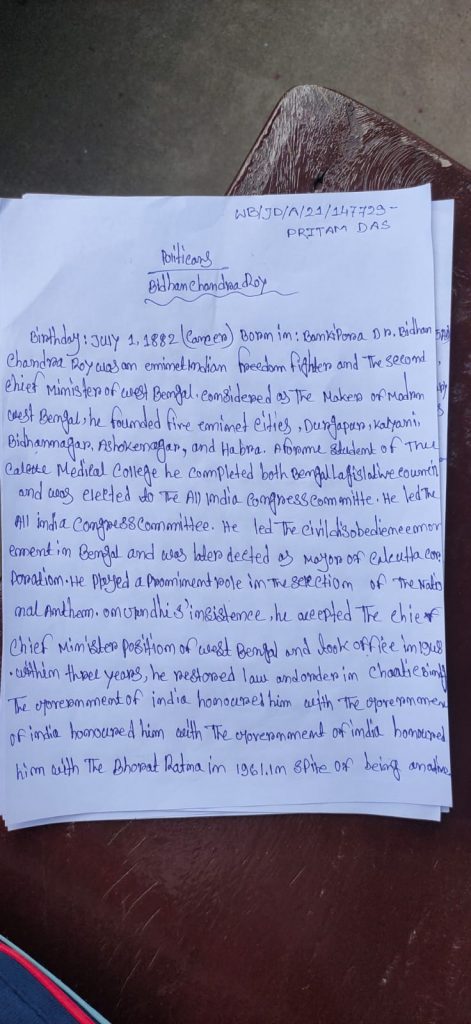 WB/JD/A/21/147729-
PRITAM DAS
Politicans
Bidhan Chandra Roy
Birthday: July 1, 1882 (Cancer) Born in: Bankipora Dr. Bidhan
Chandra Roy was an eminet indian freedom fighter and The second
chief Minister of west Bengal. considered as The Maker of Modrn
west Bengal, he founded five eminet cities, Durgapur, Kalyani,
Bidhannagar, Ashokenagar, and Habra. A forme student of The
Medical College he completed both Bengal
and was elected to The All India Congress committe. He led The
All india Congress committee. He led The civil disobedience mov
ement in Bengal and was later elected as mayor of Calcutta corp
oration. He Played a Prominment role in the selection of The Natio
nal Anthem. on insistence, he accepted The chief
Chief Minister Position of west Bengal and took office in 1948
. within three years, he restored law and order in
The government of india honoured him with The governmen
of india honoured him with The government of india honoured
him with The Bharat Ratna in 1961. In spite of being an